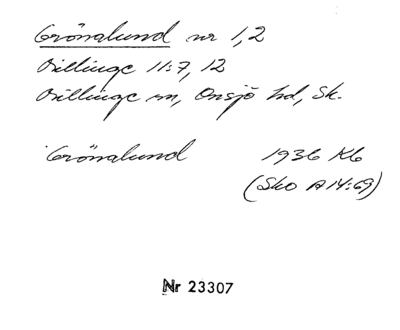 Grönalund nr 1,2
Billinge 11:7, 12
Billinge sn, Onsjö hd, Sk.
Grönalund 1936 Kb
(Sko A14:69)
Nr 23307